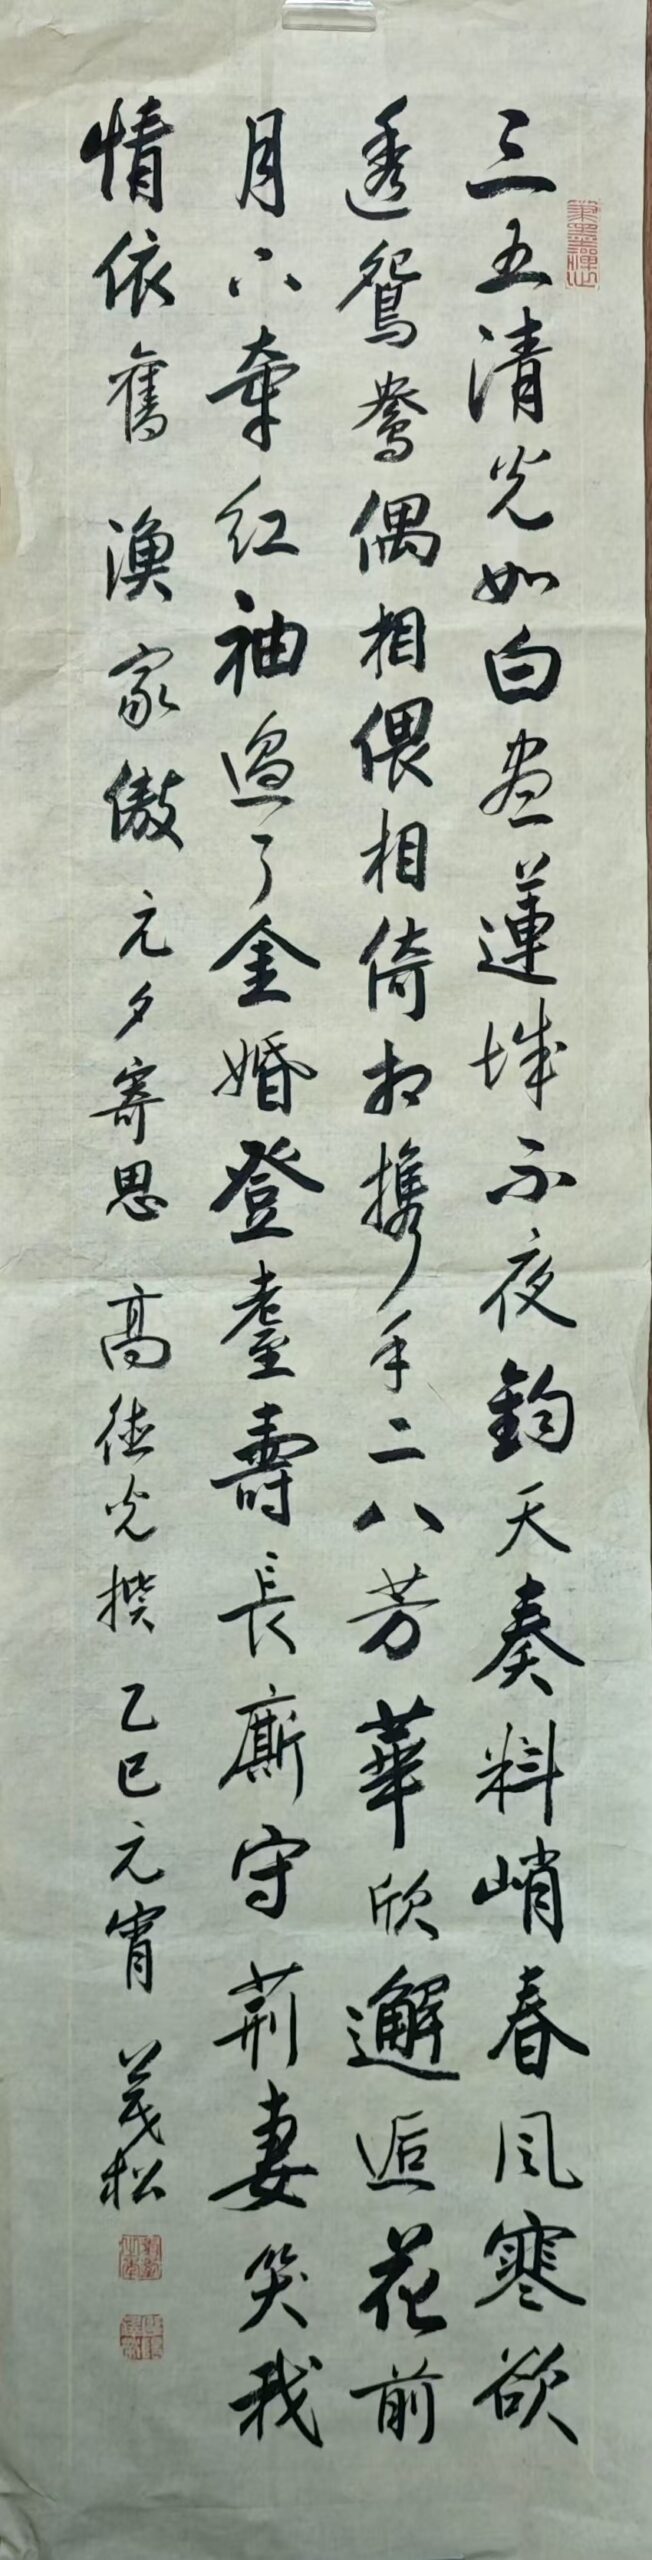 三五清光如白晝蓮城不夜鈞天奏料峭春風寒欲
透鴛鴦偶相偎相倚相攜手二八芳華欣邂逅花前
月下牽紅袖過了金婚登耋壽長廝守荊妻笑我
情依舊 漁家傲 元夕寄思 高德光撰 乙巳元宵 茂松